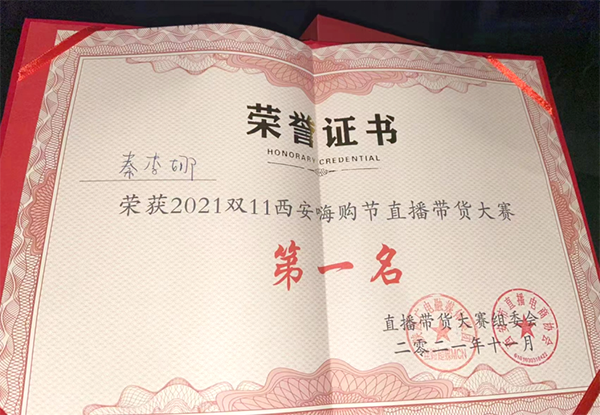 荣誉证书
HONORARY CREDENTIAL
秦杏娜
荣获2021双11西安嗨购节直播带货大赛
第一名
直播带货大赛组委会
二零二一年十一月
直播电商协会